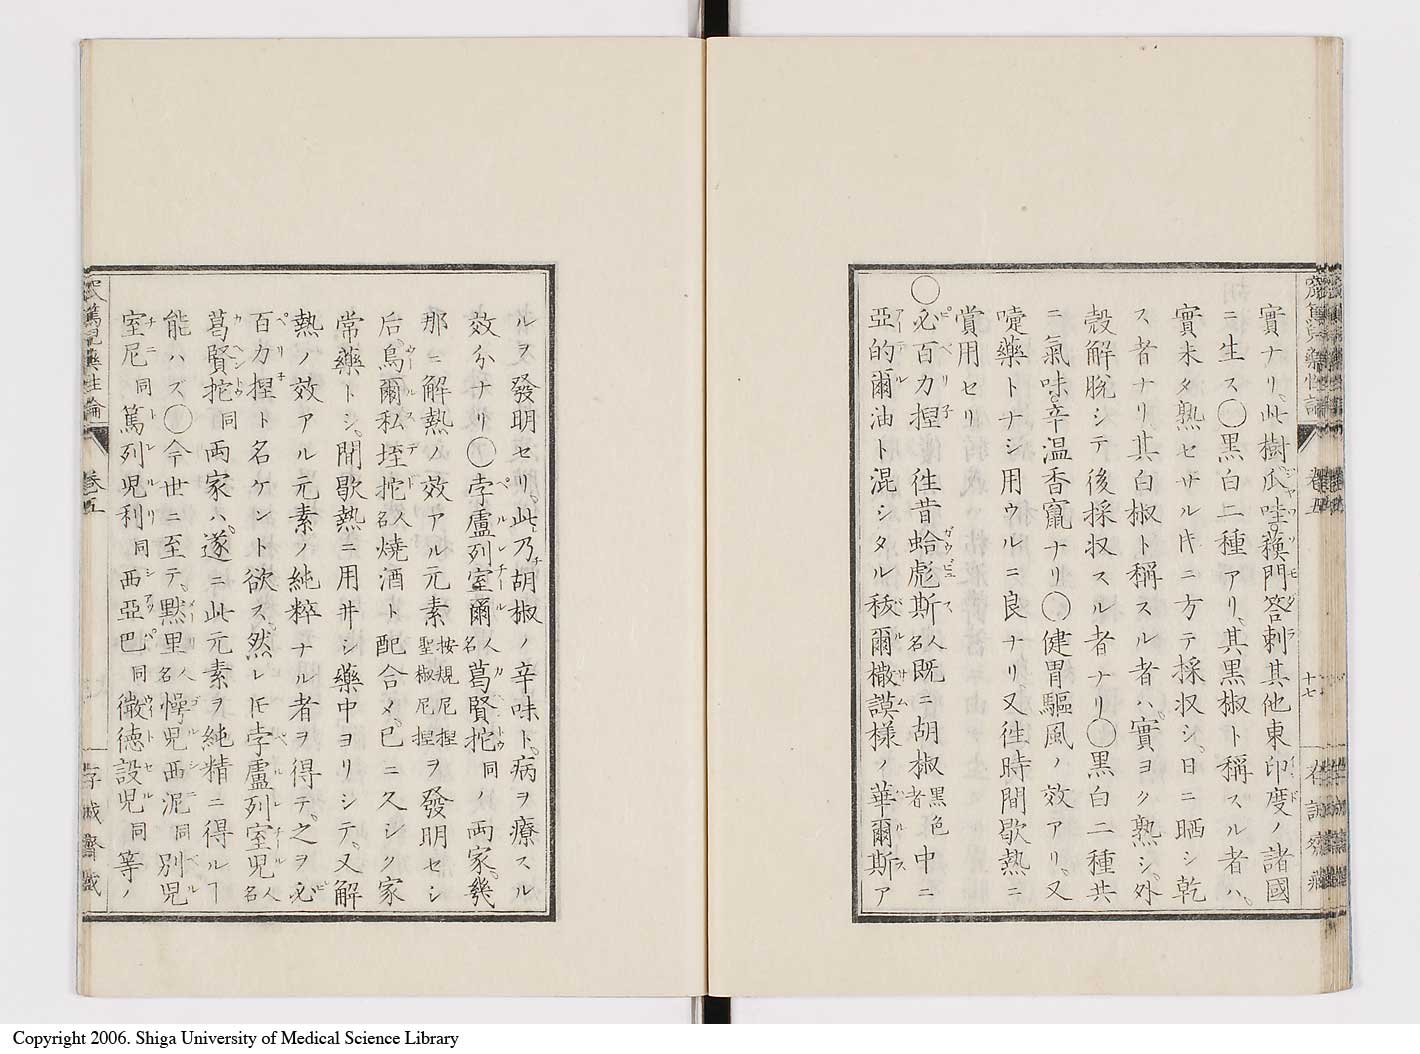 實ナリ此樹瓜哇蘓門荅剌其他東印度ノ諸國
ニ生ス〇黒白二種アリ其黒椒ト稱スル者ハ
實未タ熟セサル𪜈ニ方テ採収シ日ニ晒シ乾
ス者ナリ其白椒ト稱スル者ハ實ヨク熟シ外
殻解脱シテ後採収スル者ナリ〇黒白二種共
ニ氣味辛温香竄ナリ〇健胃驅風ノ效アリ又
嚔藥トナシ用ウルニ良ナリ又徃時間歇熱ニ
賞用セリ
〇必百力揑 徃昔蛤彪斯人名既ニ胡椒黒色者中ニ
亞的爾油ト混シタル秡爾撒謨様ノ華爾斯ア
ルヲ發明セリ此乃胡椒ノ辛味ト病ヲ療スル
效分ナリ〇孛盧列室爾人名葛賢挓同ノ両家幾
那ニ解熱ノ效アル元素按規尼揑聖椒尼揑ヲ發明セシ
后烏爾私垤挓人名燒酒ト配合メ已ニ久シク家
常藥トシ間歇熱ニ用井シ藥中ヨリシテ又解
熱ノ效アル元素ノ純粹ナル者ヲ得テ之ヲ必
百力揑ト名ケント欲ス然レ𪜈孛盧列室児人名
葛賢挓同両家ハ遂ニ此元素ヲ純精ニ得ルヿ
能ハズ〇今世ニ至テ黙里人名懆児西泥同別児
室尼同篤列児利同西亞巴同微徳設児同等ノ
卷五
十七